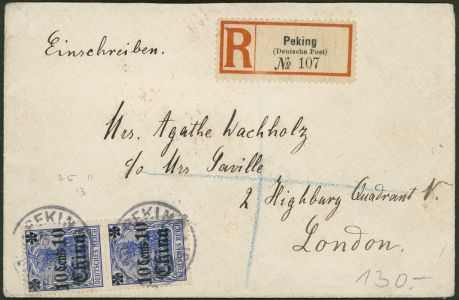 Einschreiben.
R
Peking
(Deutsche Post)
№ 107
Mrs. Agathe Wachholz
c/o Mrs Saville
2 Highbury Quadrant N.
London.
25 11
13
PEKING
PEKING
10 Cents 10
China
DEUTSCHES REICH
10 Cents 10
China
DEUTSCHES REICH
130.-